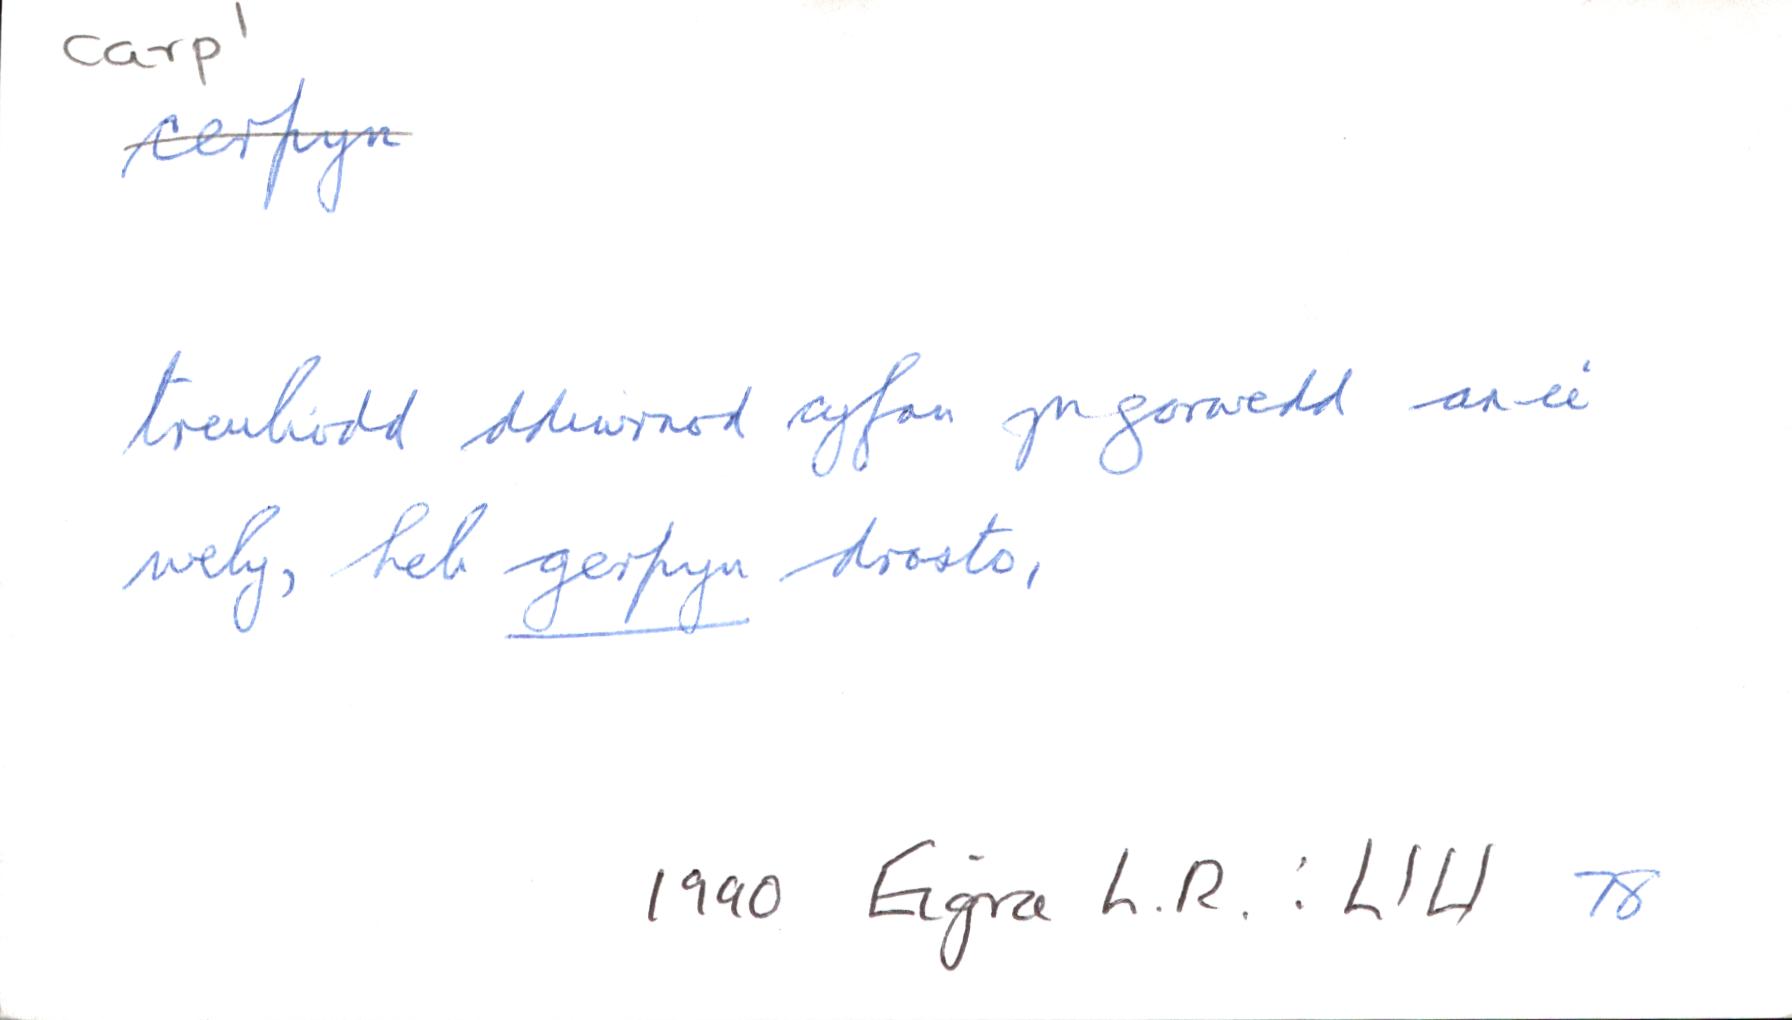 carp¹
cerpyn
treuliodd ddiwrnod cyfan yn gorwedd ar ei
wely, heb gerpyn drosto,
1990 Eigra L.R. : LlLl 78